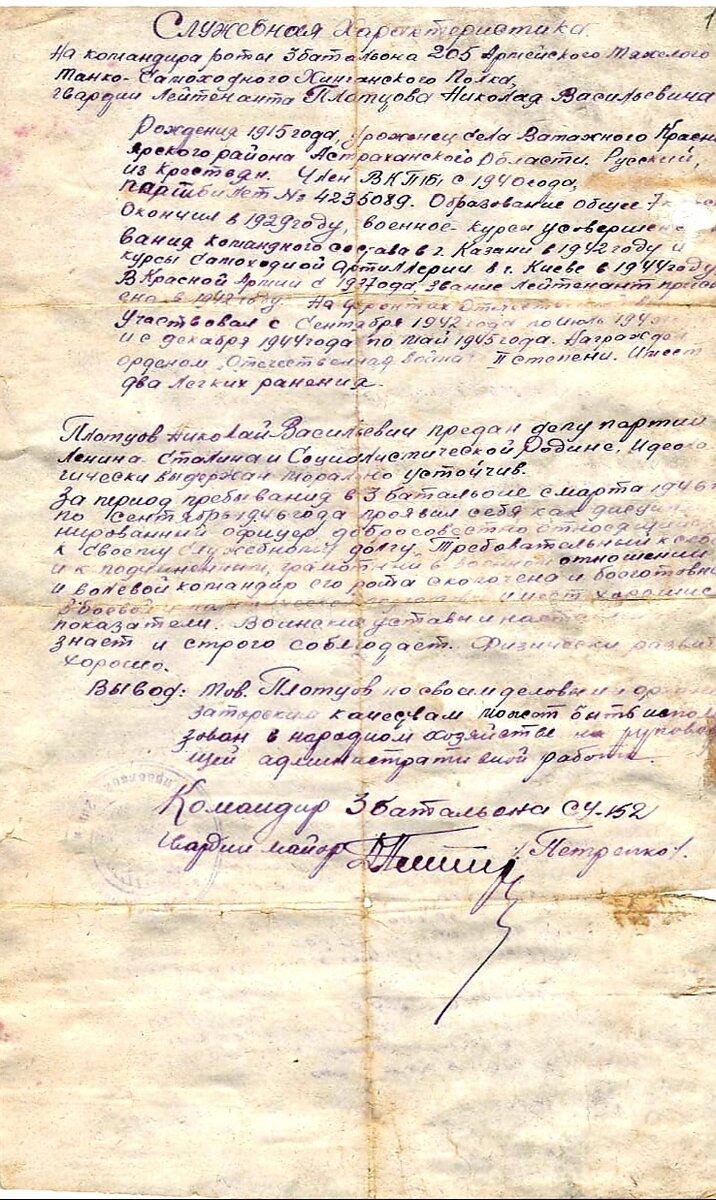 Служебная Характеристика.
На командира роты 3 батальона 205 Армейского Тяжелого
Танко-Самоходного Хинганского Полка,
гвардии Лейтенанта Плотцова Николая Васильевича
Рождения 1915 года, уроженец села Ватажного Красно
ярского района Астраханской Области. Русский,
из крестьян. Член ВКП/б/ с 1940 года,
партбилет № 4235089. Образование общее 7
Окончил в 1929 году, военное- курсы усовершенс
вания командного состава в г. Казани в 1942 году и
курсы Самоходной Артиллерии в г. Киеве в 1944 году
В Красной Армии с 1937 года, звание Лейтенант присво
ено в 1942 году. На фронтах Отечественной
Участвовал с Сентября 1942 года по июль
и с декабря 1944 года по май 1945 года. Награжден
орденом „Отечественная война" II степени. Имеет
два легких ранения.
Плотцов Николай Васильевич предан делу партии
Ленина-Сталина и Социалистической Родине. Идеоло
гически выдержан морально устойчив.
За период пребывания в 3 батальоне с марта 1946 г
по Сентябрь 1946 года проявил себя как дисципли
нированный офицер добросовестно относящийся
к своему служебному долгу. Требовательный к себе
и к подчиненным, грамотный в военном отношении
и волевой командир его рота сколочена и боеготовна
В боевой и политической имеет хорошие
показатели. Воинские уставы и
знает и строго соблюдает. Физически развит
хорошо.
Вывод: Тов. Плотцов по своим деловым и органи
заторским качесвам может быть исполь
зован в народном хозяйстве на руководя
щей административной работе.
Командир 3 батальона СУ-152
гвардии майор /Петренко/.